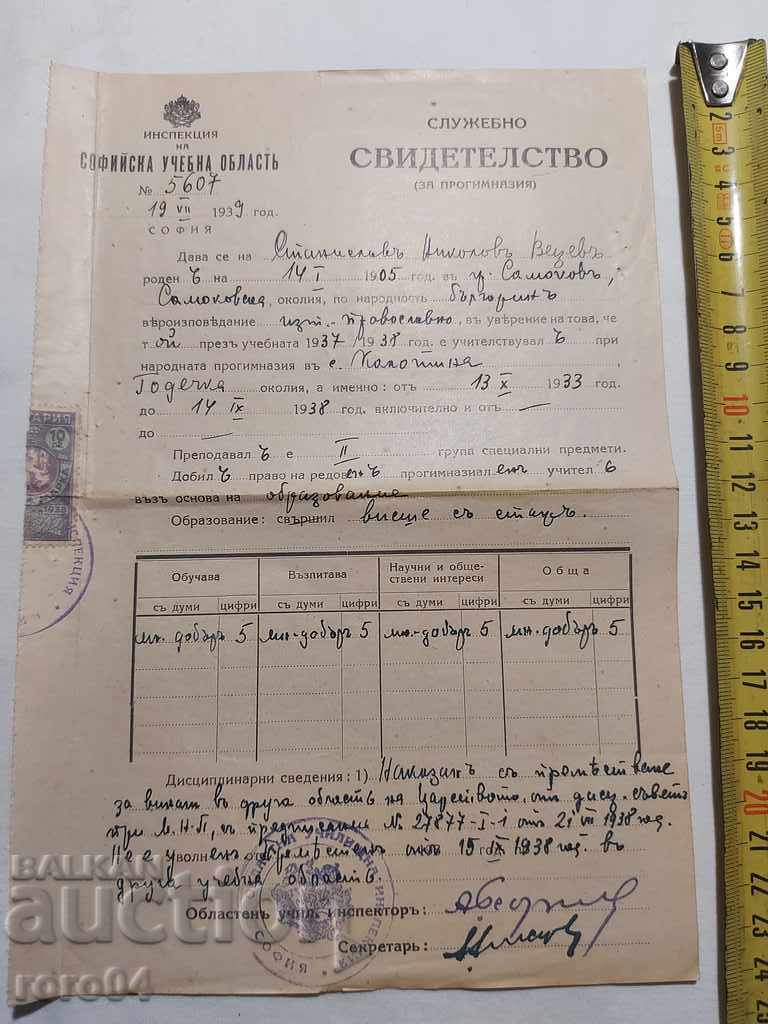 ИНСПЕКЦИЯ
НА
СОФИЙСКА УЧЕБНА ОБЛАСТЬ
№ 5607
19 VII 1939 год.
СОФИЯ
СЛУЖЕБНО
СВИДЕТЕЛСТВО
(ЗА ПРОГИМНАЗИЯ)
Дава се на Станиславъ Николовъ Вецевъ
роден ъ на 14 I 1905 год. въ гр. Самоковъ,
Самоковска околия, по народность българинъ
вѣроизповѣдание изт.-православно, въ уверение на това, че
т ой презъ учебната 1937/1938 год. е учителствувал ъ при
народната прогимназия въ с. Калотина,
Годечка околия, а именно: отъ 13 X 1933 год.
до 14 IX 1938 год. включително и отъ —
до —
Преподавал ъ е II група специални предмети.
Добил ъ право на редовенъ прогимназиаленъ учител ь
възъ основа на образование
Образование: свършил висше съ стажъ.
Обучава Възпитава Научни и обществени интереси Обща
съ думи цифри съ думи цифри съ думи цифри съ думи цифри
мн. добъръ 5 мн.-добъръ 5 мн.-добъръ 5 мн.-добъръ 5
Дисциплинарни сведения: 1) Наказанъ съ премѣстване
за винаги въ друга область на Царството, отъ дисц. съветъ
при М.Н.П., съ предписание № 27877-I-1 отъ 21 VII 1938 год.
Не е уволненъ от премѣстенъ отъ 15 IX 1938 год. въ
друга учебна область.
Областенъ учил. инспекторъ:
Секретарь:
БЪЛГАРИЯ
10
ИНСПЕКЦИЯ
СОФИЯ
BALKAN
auction
roro04
2 3 4 5 6 7 8 9 10 11 12 13 14 15 16 17 18 19 20 21 22 23 24 25